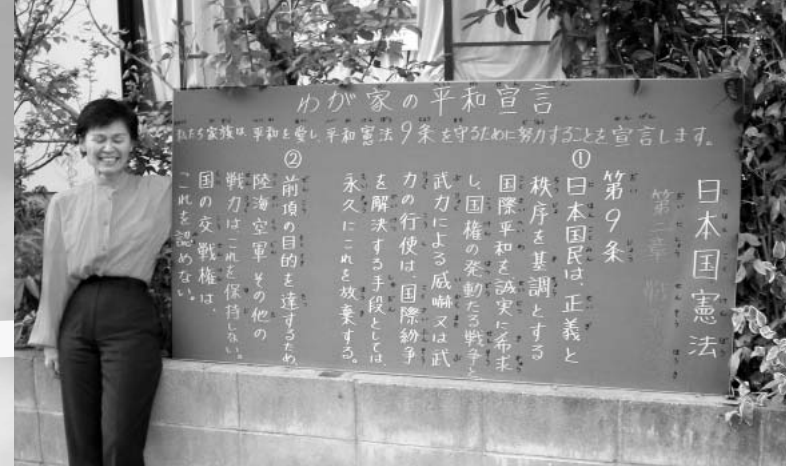 わが家の平和宣言
私たち家族は、平和を愛し、平和憲法9条を守るために努力することを宣言します。
日本国憲法
第二章 戦争
第9条
①日本国民は、正義と
秩序を基調とする
国際平和を誠実に希求
し、国権の発動たる戦争と
武力による威嚇又は武
力の行使は、国際紛争
を解決する手段としては、
永久にこれを放棄する。
②前項の目的を達するため、
陸海空軍その他の
戦力はこれを保持しない。
国の交戦権は、
これを認めない。